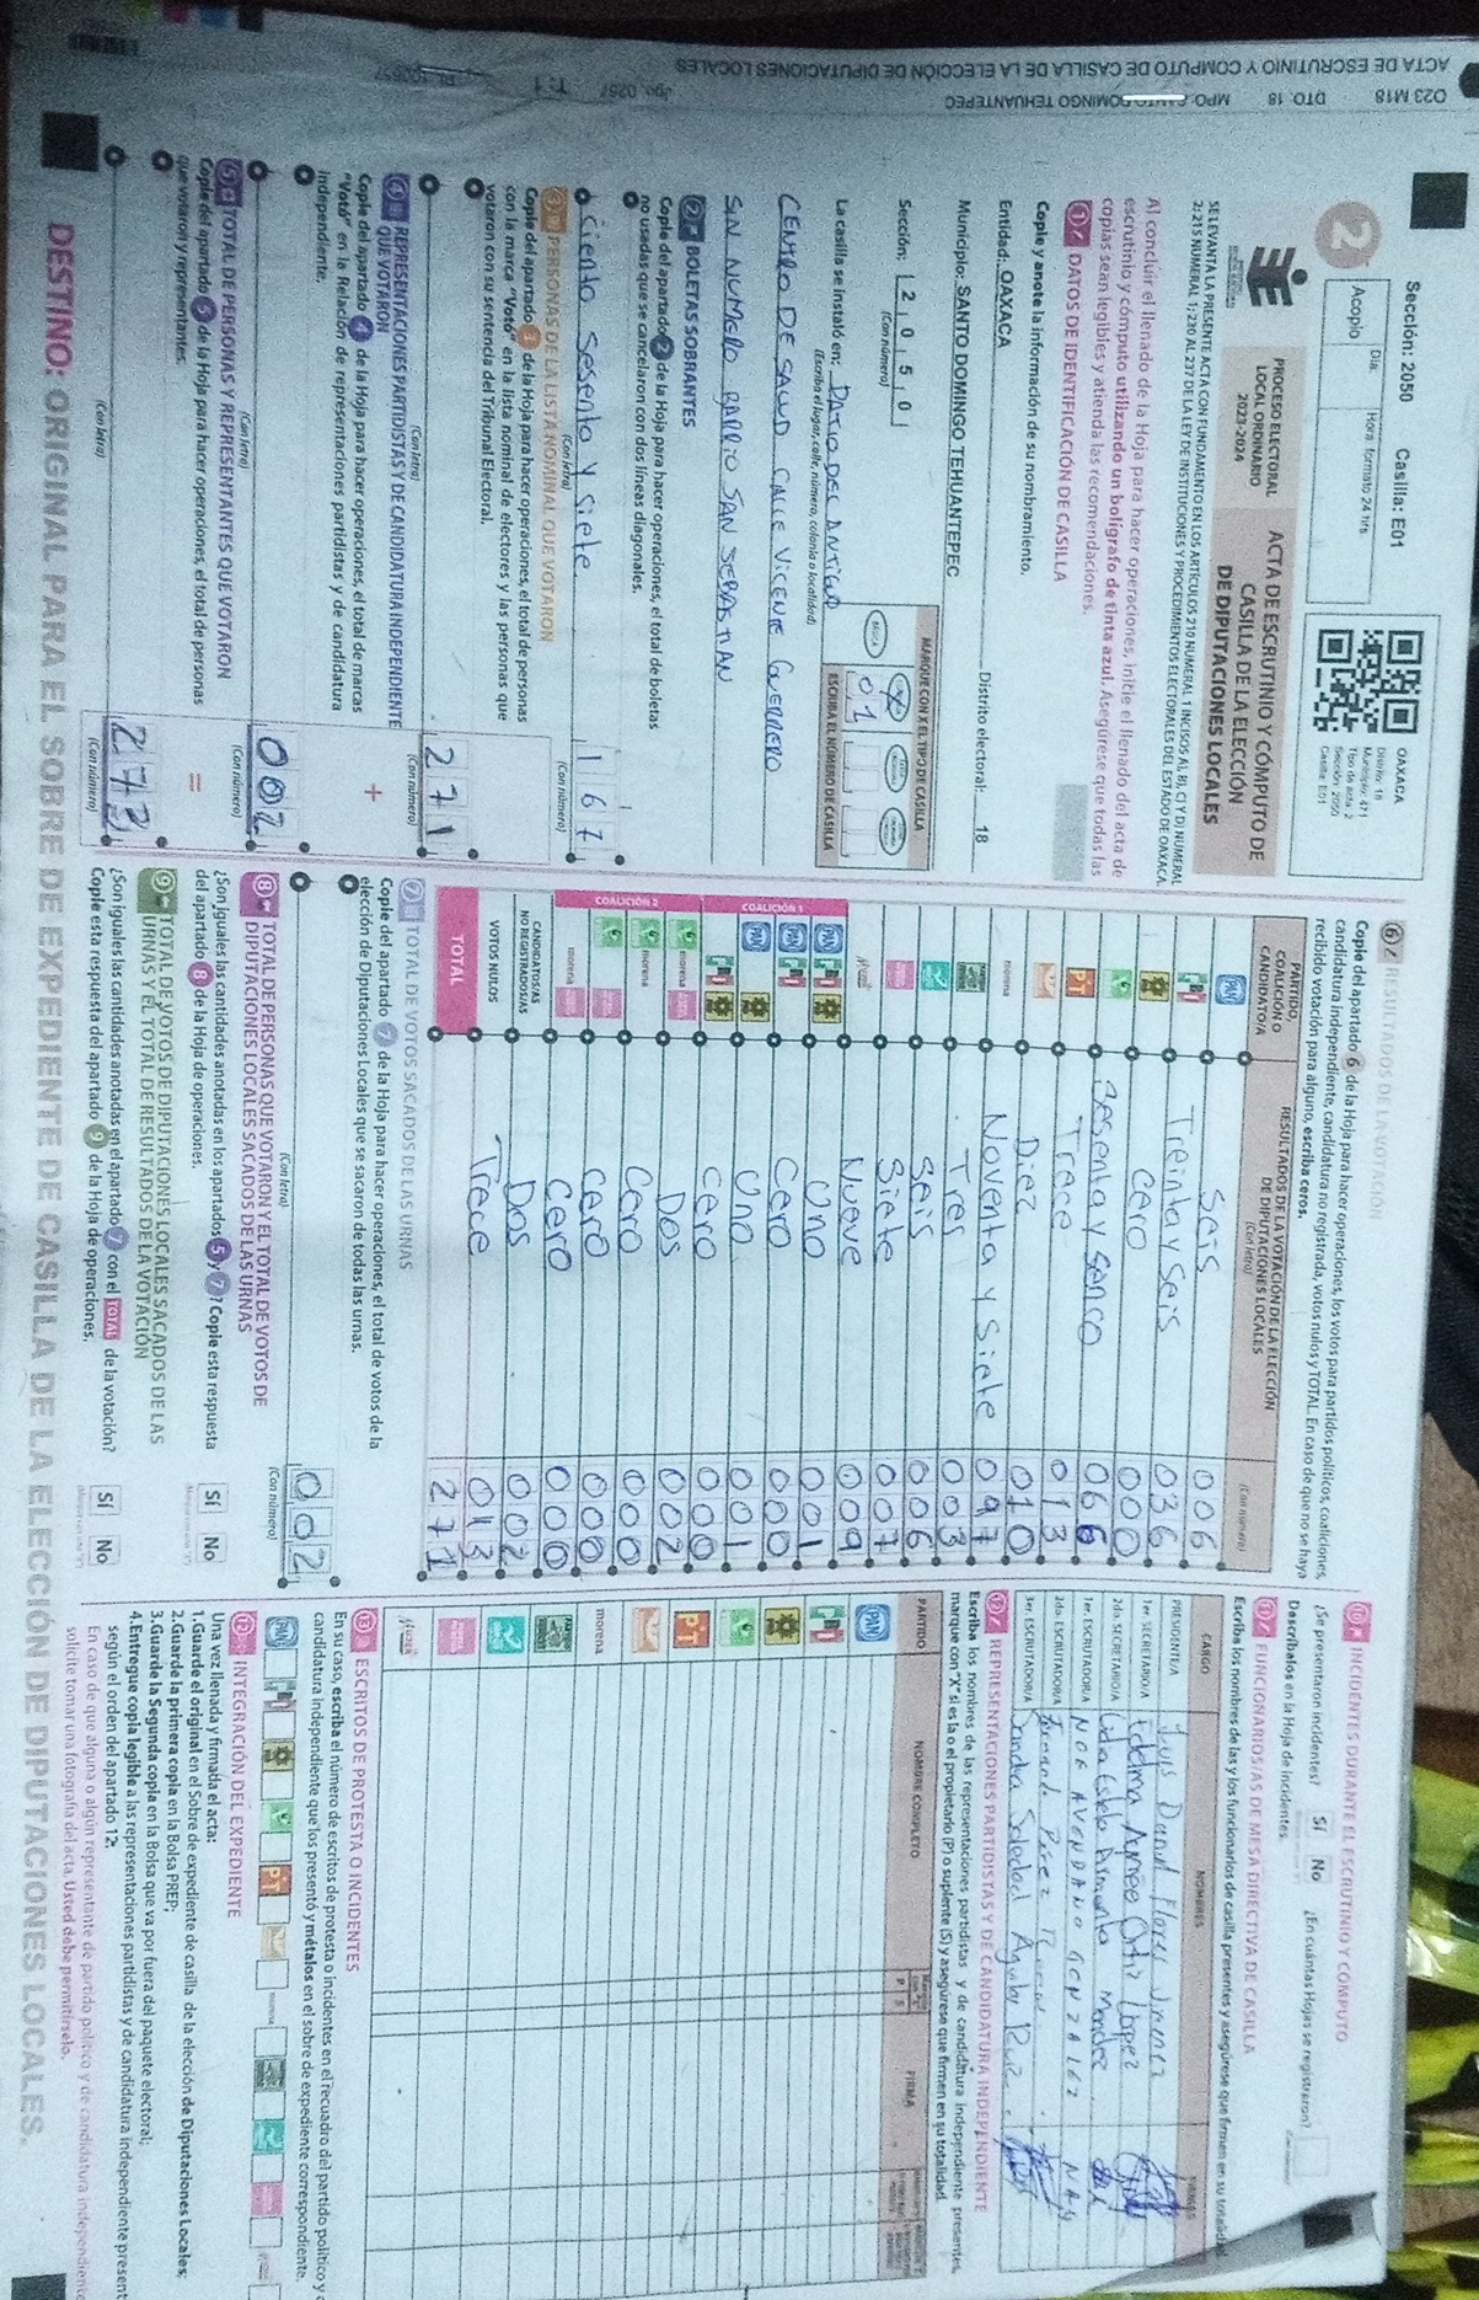 O23 M18 DTO. 18 MPO. SANTO DOMINGO TEHUANTEPEC
ACTA DE ESCRUTINIO Y CÓMPUTO DE CASILLA DE LA ELECCIÓN DE DIPUTACIONES LOCALES
Sección: 2050 Casilla: E01
2
Acopio
Día:
Hora: formato 24 hrs
OAXACA
Distrito: 18
Municipio: 471
Tipo de acta: 2
Sección: 2050
Casilla: E01
PROCESO ELECTORAL
LOCAL ORDINARIO
2023-2024
ACTA DE ESCRUTINIO Y CÓMPUTO DE
CASILLA DE LA ELECCIÓN
DE DIPUTACIONES LOCALES
SE LEVANTA LA PRESENTE ACTA CON FUNDAMENTO EN LOS ARTÍCULOS 210 NUMERAL 1 INCISOS A), B), C) Y D) NUMERAL
2; 215 NUMERAL 1; 230 AL 237 DE LA LEY DE INSTITUCIONES Y PROCEDIMIENTOS ELECTORALES DEL ESTADO DE OAXACA.
Al concluir el llenado de la Hoja para hacer operaciones, inicie el llenado del acta de
escrutinio y cómputo utilizando un bolígrafo de tinta azul. Asegúrese que todas las
copias sean legibles y atienda las recomendaciones.
1 DATOS DE IDENTIFICACIÓN DE CASILLA
Copie y anote la información de su nombramiento.
Entidad: OAXACA Distrito electoral: 18
Municipio: SANTO DOMINGO TEHUANTEPEC
Sección: 2 0 5 0
(Con número)
MARQUE CON X EL TIPO DE CASILLA
BÁSICA
ESCRIBA EL NÚMERO DE CASILLA
0 1
La casilla se instaló en: PATIO DEL ANTIGUO
(Escriba el lugar, calle, número, colonia o localidad)
CENTRO DE SALUD CALLE VICENTE GUERRERO
SIN NUMERO BARRIO SAN SEBASTIAN
2 BOLETAS SOBRANTES
Copie del apartado 2 de la Hoja para hacer operaciones, el total de boletas
no usadas que se cancelaron con dos líneas diagonales.
Ciento Sesenta y siete 1 6 7
(Con letra) (Con número)
3 PERSONAS DE LA LISTA NOMINAL QUE VOTARON
Copie del apartado 3 de la Hoja para hacer operaciones, el total de personas
con la marca "Votó" en la lista nominal de electores y las personas que
votaron con su sentencia del Tribunal Electoral.
2 7 1
(Con letra) (Con número)
4 REPRESENTACIONES PARTIDISTAS Y DE CANDIDATURA INDEPENDIENTE
QUE VOTARON
Copie del apartado 4 de la Hoja para hacer operaciones, el total de marcas
"Votó" en la Relación de representaciones partidistas y de candidatura
independiente.
+
0 0 2
(Con letra) (Con número)
5 TOTAL DE PERSONAS Y REPRESENTANTES QUE VOTARON
Copie del apartado 5 de la Hoja para hacer operaciones, el total de personas
que votaron y representantes.
=
2 7
(Con letra) (Con número)
6 RESULTADOS DE LA VOTACIÓN
Copie del apartado 6 de la Hoja para hacer operaciones, los votos para partidos políticos, coaliciones,
candidatura independiente, candidatura no registrada, votos nulos y TOTAL. En caso de que no se haya
recibido votación para alguno, escriba ceros.
PARTIDO,
COALICIÓN O
CANDIDATO/A
RESULTADOS DE LA VOTACIÓN DE LA ELECCIÓN
DE DIPUTACIONES LOCALES
(Con letra)
(Con número)
PAN Seis 006
PRI Treinta y seis 036
Cero 000
PT Sesenta y senco 066
Trece 013
morena Diez 010
Noventa y Siete 097
Tres 003
Seis 006
Siete 007
Nueve 009
COALICIÓN 1
PAN PRI Uno 001
PAN PRI Cero 000
PAN Uno 001
PRI Cero 000
COALICIÓN 2
morena Dos 002
morena Cero 000
Cero 000
morena Cero 000
CANDIDATOS/AS
NO REGISTRADOS/AS Dos 002
VOTOS NULOS Trece 013
TOTAL 271
7 TOTAL DE VOTOS SACADOS DE LAS URNAS
Copie del apartado 7 de la Hoja para hacer operaciones, el total de votos de la
elección de Diputaciones Locales que se sacaron de todas las urnas.
0 0 2
(Con letra) (Con número)
8 TOTAL DE PERSONAS QUE VOTARON Y EL TOTAL DE VOTOS DE
DIPUTACIONES LOCALES SACADOS DE LAS URNAS
¿Son iguales las cantidades anotadas en los apartados 5 y 7? Copie esta respuesta
del apartado 8 de la Hoja de operaciones. Sí No
9 TOTAL DE VOTOS DE DIPUTACIONES LOCALES SACADOS DE LAS
URNAS Y EL TOTAL DE RESULTADOS DE LA VOTACIÓN
¿Son iguales las cantidades anotadas en el apartado 7 con el TOTAL de la votación?
Copie esta respuesta del apartado 9 de la Hoja de operaciones. Sí No
10 INCIDENTES DURANTE EL ESCRUTINIO Y CÓMPUTO
¿Se presentaron incidentes? Sí No ¿En cuántas Hojas se registraron?
Descríbalos en la Hoja de incidentes.
11 FUNCIONARIOS/AS DE MESA DIRECTIVA DE CASILLA
Escriba los nombres de las y los funcionarios de casilla presentes y asegúrese que firmen en su totalidad.
CARGO NOMBRES FIRMAS
PRESIDENTE/A Luis Daniel Flores Jimenez
1er. SECRETARIO/A Edelma Aymee Ortiz López
2do. SECRETARIO/A Lidia Estela Armenta Mendez
1er. ESCRUTADOR/A NOE AVENDAÑO GONZALEZ
2do. ESCRUTADOR/A Fernando Pérez
3er. ESCRUTADOR/A Sandra Soledad Aguilar Ruiz
12 REPRESENTACIONES PARTIDISTAS Y DE CANDIDATURA INDEPENDIENTE
Escriba los nombres de las representaciones partidistas y de candidatura independiente presentes,
marque con "X" si es la o el propietario (P) o suplente (S) y asegúrese que firmen en su totalidad.
PARTIDO NOMBRE COMPLETO P S FIRMA
PAN
PRI
PT
morena
13 ESCRITOS DE PROTESTA O INCIDENTES
En su caso, escriba el número de escritos de protesta o incidentes en el recuadro del partido político y
candidatura independiente que los presentó y métalos en el sobre de expediente correspondiente.
PAN PRI PT morena
INTEGRACIÓN DEL EXPEDIENTE
Una vez llenada y firmada el acta:
1.Guarde el original en el Sobre de expediente de casilla de la elección de Diputaciones Locales;
2.Guarde la primera copia en la Bolsa PREP;
3.Guarde la Segunda copia en la Bolsa que va por fuera del paquete electoral;
4.Entregue copia legible a las representaciones partidistas y de candidatura independiente present
según el orden del apartado 12.
En caso de que alguna o algún representante de partido político y de candidatura independiente
solicite tomar una fotografía del acta, Usted debe permitírselo.
DESTINO: ORIGINAL PARA EL SOBRE DE EXPEDIENTE DE CASILLA DE LA ELECCIÓN DE DIPUTACIONES LOCALES.